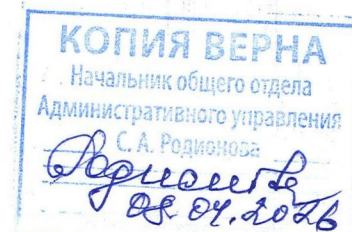 КОПИЯ ВЕРНА
Начальник общего отдела
Административного управления
С. А. Родионова
Родионова
08.04.2026